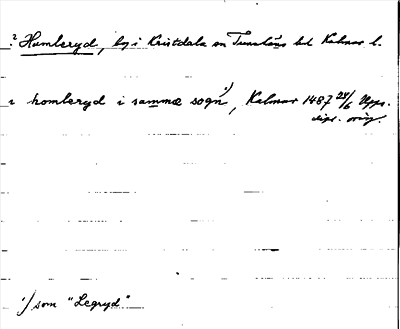 ? Humleryd, by i Kristdala sn Tunaläns hd Kalmar l.
i homleryd i samma sogn 1), Kalmar 1487 24/6 Upps.
dipl. orig.
1) som "Legryd"